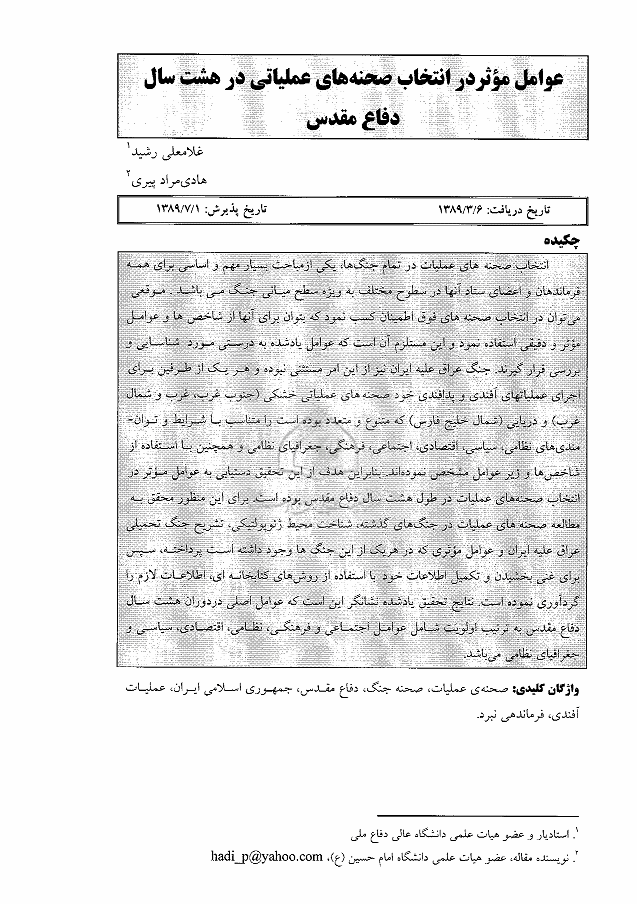 عوامل مؤثر در انتخاب صحنه‌های عملیاتی در هشت سال
دفاع مقدس
غلامعلی رشید۱
هادی‌مراد پیری۲
تاریخ دریافت: ۱۳۸۹/۳/۶ تاریخ پذیرش: ۱۳۸۹/۷/۱
چکیده
انتخاب صحنه های عملیات در تمام جنگ‌ها، یکی از مباحث بسیار مهم و اساسی برای همه
فرماندهان و اعضای ستاد آنها در سطوح مختلف به ویژه سطح میانی جنگ می باشد. موقعی
می‌توان در انتخاب صحنه های فوق اطمینان کسب نمود که بتوان برای آنها از شاخص ها و عوامل
مؤثر و دقیقی استفاده نمود و این مستلزم آن است که عوامل یادشده به درستی مورد شناسایی و
بررسی قرار گیرند. جنگ عراق علیه ایران نیز از این امر مستثنی نبوده و هر یک از طرفین برای
اجرای عملیاتهای آفندی و پدافندی خود صحنه های عملیاتی خشکی (جنوب غرب، غرب و شمال
غرب) و دریایی (شمال خلیج فارس) که متنوع و متعدد بوده است را متناسب با شرایط و توان-
مندی‌های نظامی، سیاسی، اقتصادی، اجتماعی، فرهنگی، جغرافیای نظامی و همچنین با استفاده از
شاخص‌ها و زیر عوامل مشخص نموده‌اند. بنابراین هدف از این تحقیق دستیابی به عوامل مؤثر در
انتخاب صحنه‌های عملیات در طول هشت سال دفاع مقدس بوده است. برای این منظور محقق به
مطالعه صحنه های عملیات در جنگ‌های گذشته، شناخت محیط ژئوپولتیکی، تشریح جنگ تحمیلی
عراق علیه ایران و عوامل مؤثری که در هریک از این جنگ ها وجود داشته است پرداخته، سپس
برای غنی بخشیدن و تکمیل اطلاعات خود با استفاده از روش‌های کتابخانه ای، اطلاعات لازم را
گردآوری نموده است. نتایج تحقیق یادشده نشانگر این است که عوامل اصلی دردوران هشت سال
دفاع مقدس به ترتیب اولویت شامل عوامل اجتماعی و فرهنگی، نظامی، اقتصادی، سیاسی و
جغرافیای نظامی می‌باشد.
واژگان کلیدی: صحنه‌ی عملیات، صحنه جنگ، دفاع مقدس، جمهوری اسلامی ایران، عملیات
آفندی، فرماندهی نبرد.
۱. استادیار و عضو هیات علمی دانشگاه عالی دفاع ملی
۲. نویسنده مقاله، عضو هیات علمی دانشگاه امام حسین (ع)، hadi_p@yahoo.com